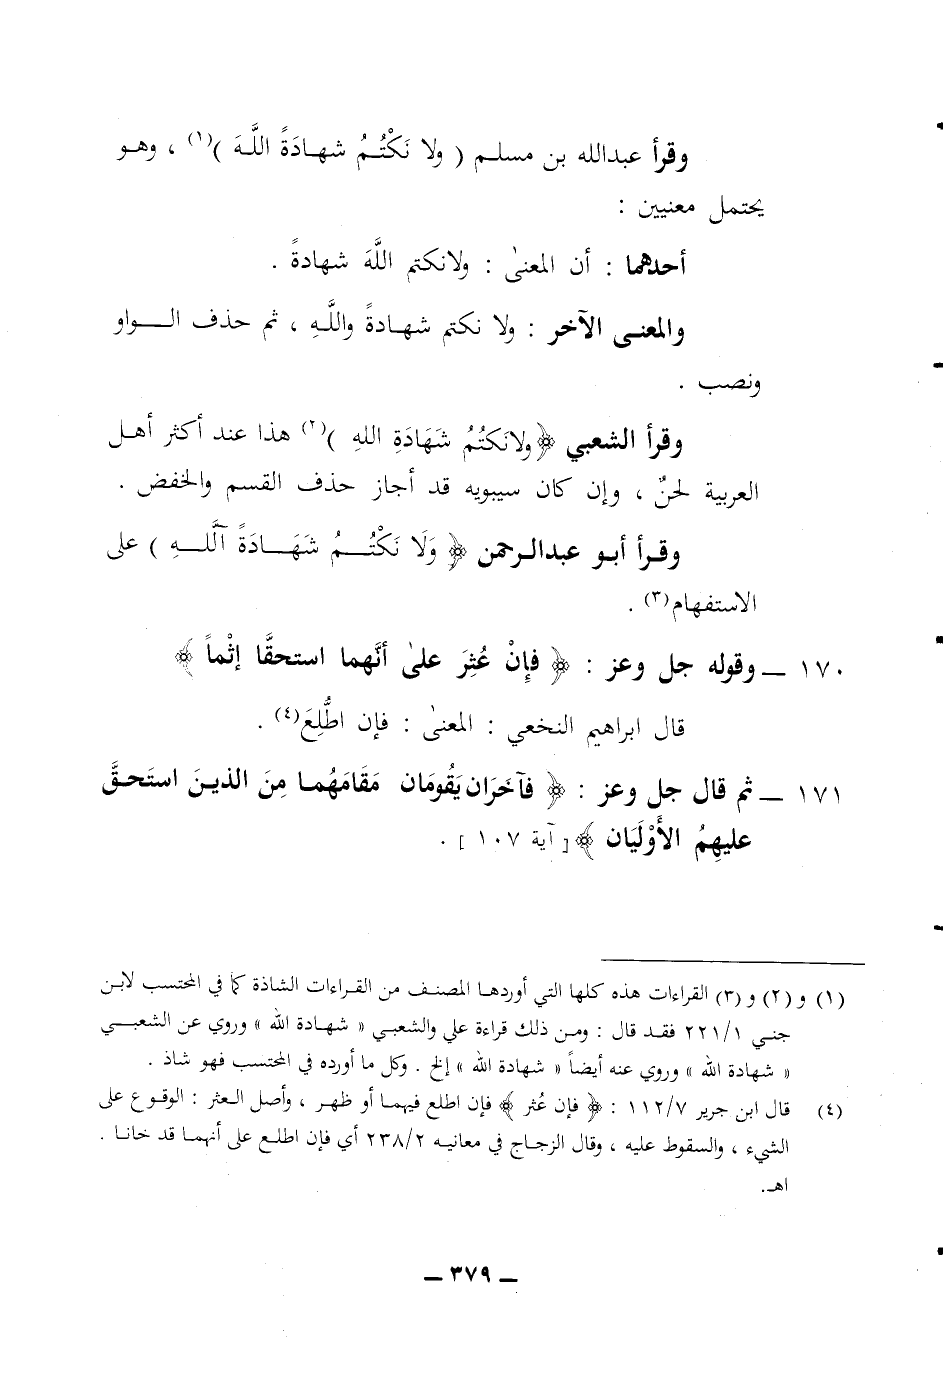 وقرأ عبدالله بن مسلم ( ولا نَكْتُمُ شهادَةً اللَّهَ )(١) ، وهو
يحتمل معنيين :
أحدهما : أن المعنىٰ : ولانكتم اللَّهَ شهادةً .
والمعنى الآخر : ولا نكتم شهادةً واللَّهِ ، ثم حذف الواو
ونصب .
وقرأ الشعبي ﴿ ولانَكتُمُ شَهَادَةِ اللهِ )(٢) هذا عند أكثر أهل
العربية لحنٌ ، وإن كان سيبويه قد أجاز حذف القسم والخفض .
وقرأ أبو عبدالرحمن ﴿ وَلَا نَكْتُمُ شَهَادَةً آللهِ ) على
الاستفهام(٣) .
١٧٠ ــ وقوله جل وعز : ﴿ فإِنْ عُثِرَ علىٰ أنَّهما استحقَّا إثْماً ﴾
قال ابراهيم النخعي : المعنىٰ : فإن اطُّلِعَ(٤) .
١٧١ ــ ثم قال جل وعز : ﴿ فآخَرَان يَقُومَان مَقَامَهُما مِنَ الذينَ استَحقَّ
عليهِمُ الأَوْلَيَان ﴾ [ آية ١٠٧ ] .
(١) و(٢) و(٣) القراءات هذه كلها التي أوردها المصنف من القراءات الشاذة كما في المحتسب لابن
جني ٢٢١/١ فقد قال : ومن ذلك قراءة علي والشعبي « شهادة الله » وروي عن الشعبي
« شهادة الله » وروي عنه أيضاً « شهادة الله » إلخ . وكل ما أورده في المحتسب فهو شاذ .
(٤) قال ابن جرير ١١٢/٧ : ﴿ فإن عُثر ﴾ فإن اطلع فيهما أو ظهر ، وأصل العثر : الوقوع على
الشيء ، والسقوط عليه ، وقال الزجاج في معانيه ٢٣٨/٢ أي فإن اطلع على أنهما قد خانا .
اهـ.
ــ ٣٧٩ ــ